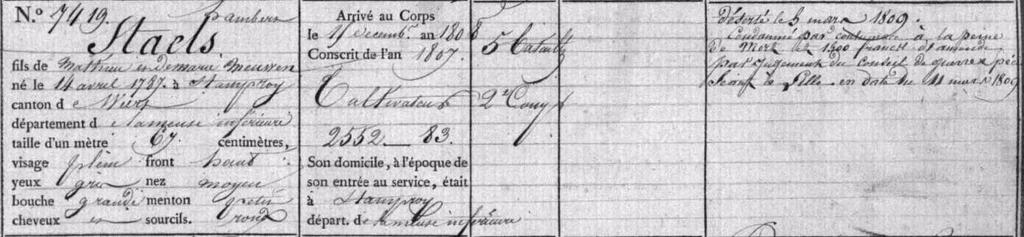 N.º 7419. Lambert
Staels.
fils de Mathieu et de marie Meuwen
né le 14 avril 1787. à Stamproy
canton de Wert
département de la meuse inférieure
taille d'un mètre 67 centimètres,
visage plein front haut
yeux gris nez moyen
bouche grande menton
cheveux sourcils. rond
Arrivé au Corps
le 17 decemb. an 1808
Conscrit de l'an 1807.
Cultivateur
2552 83.
Son domicile, à l'époque de
son entrée au service, était
à Stamproy
départ. de la meuse inférieure
5 Bataill
2 Comp
déserté le 5 mars 1809.
Condamné par contumace à la peine
de Mort et 1500 francs d'amende
par Jugement du Conseil de guerre spé
Séant à Lille en date du 11 mars 1809